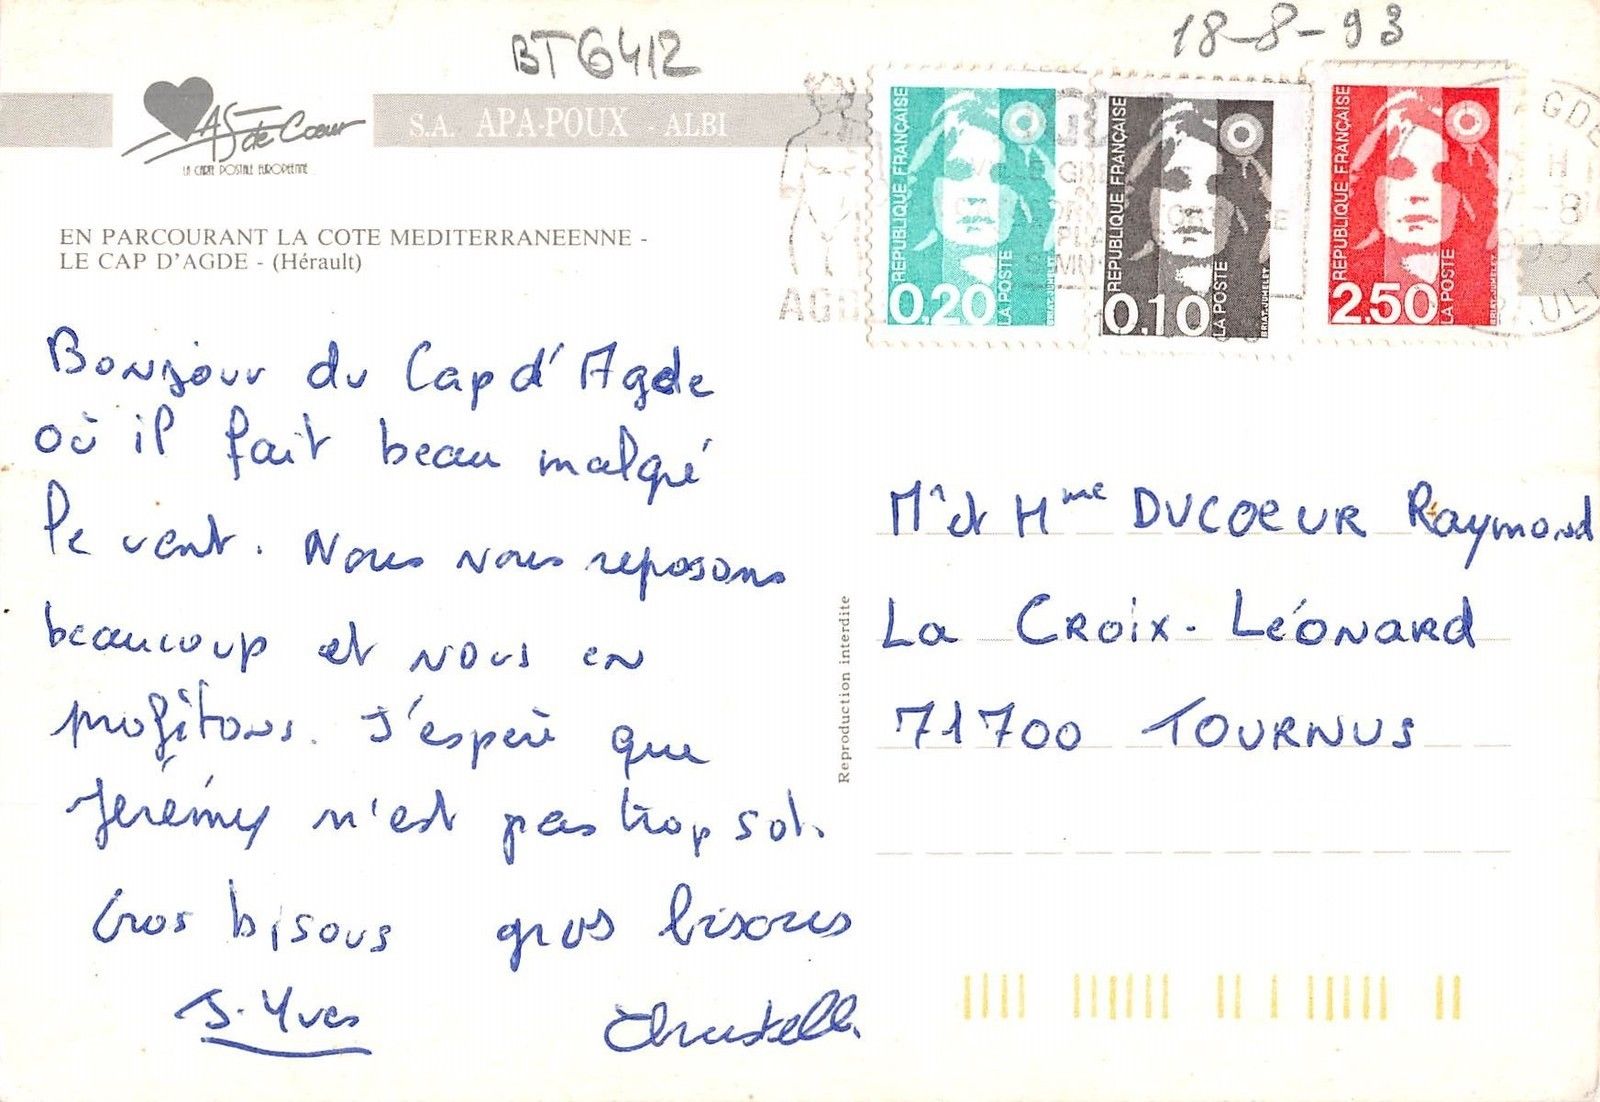 BT6412
18-8-93
AS de Cœur
LA CARTE POSTALE EUROPEENNE
S.A. APA-POUX - ALBI
EN PARCOURANT LA COTE MEDITERRANEENNE -
LE CAP D'AGDE - (Hérault)
REPUBLIQUE FRANÇAISE
0,20
LA POSTE
REPUBLIQUE FRANÇAISE
0,10
LA POSTE
REPUBLIQUE FRANÇAISE
2,50
LA POSTE
Bonjour du Cap d'Agde
où il fait beau malgré
le vent. Nous nous reposons
beaucoup et nous en
profitons. J'espère que
Jérémy n'est pas trop sot.
Gros bisous gros bisous
J-Yves Christelle
Reproduction interdite
Mr et Mme DUCOEUR Raymond
La Croix-Léonard
71700 TOURNUS